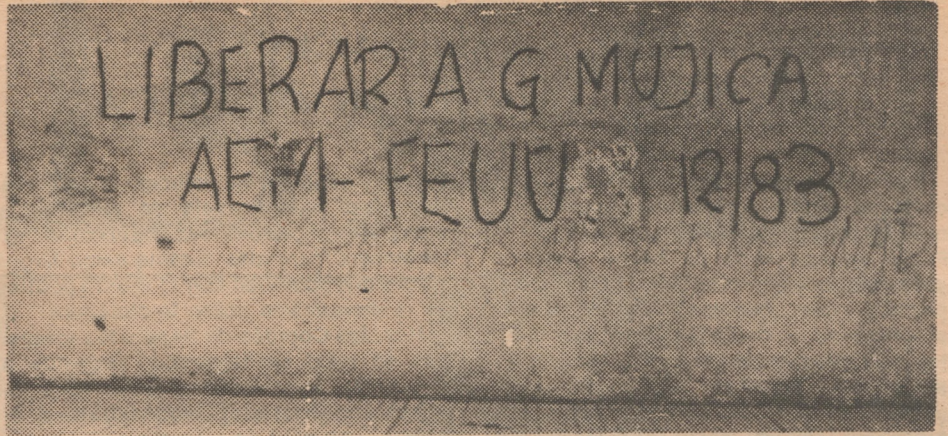 LIBERAR A G MUJICA
AEM - FEUU 12/83